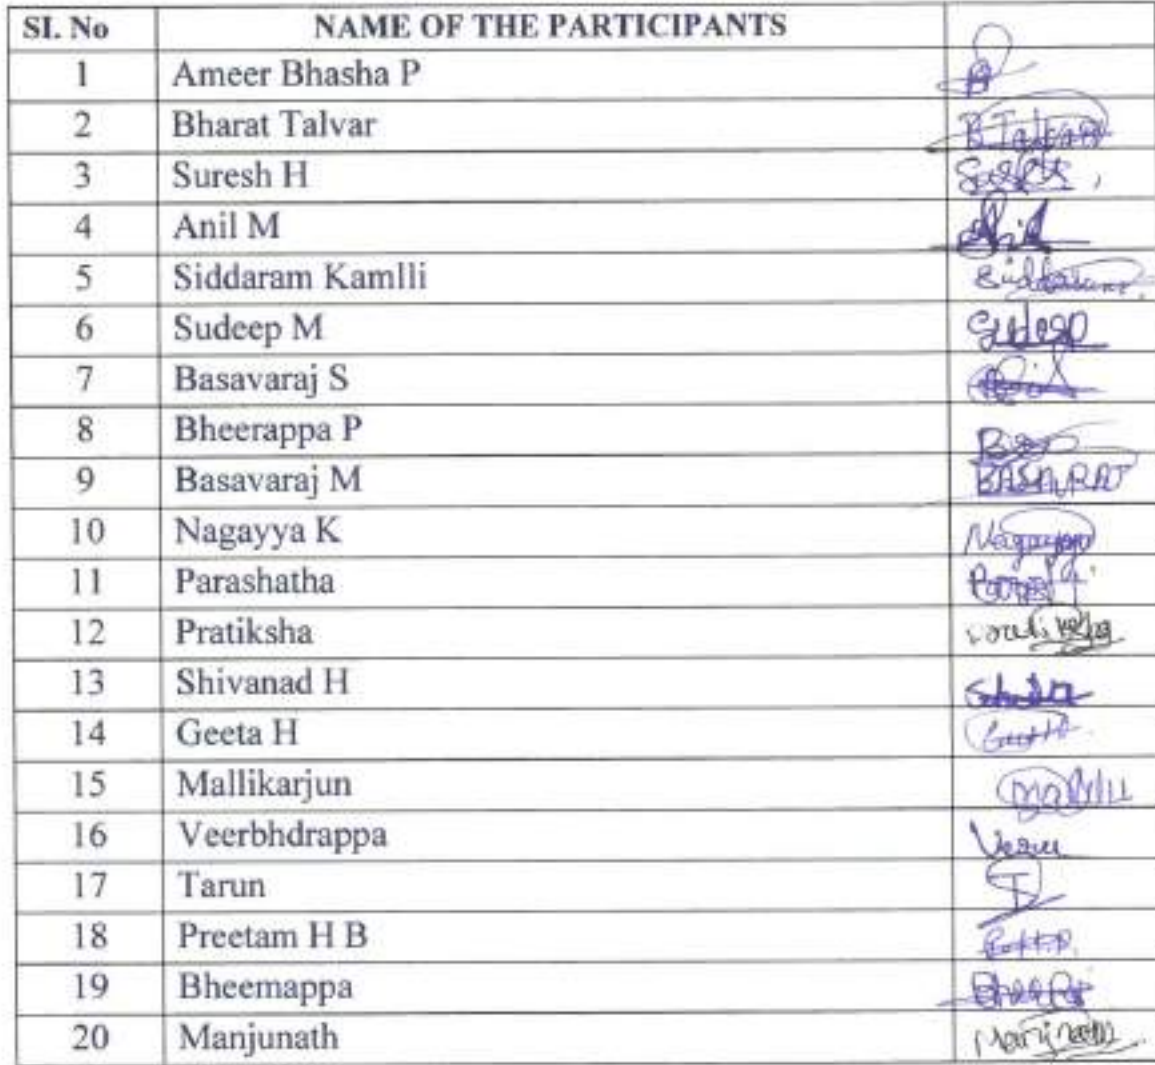 SI. No NAME OF THE PARTICIPANTS
1 Ameer Bhasha P
2 Bharat Talvar B Talvar
3 Suresh H
4 Anil M Anil
5 Siddaram Kamlli
6 Sudeep M Sudeep
7 Basavaraj S
8 Bheerappa P
9 Basavaraj M BASAVRAJ
10 Nagayya K Nagayya
11 Parashatha
12 Pratiksha
13 Shivanad H
14 Geeta H
15 Mallikarjun
16 Veerbhdrappa Veeru
17 Tarun T
18 Preetam H B
19 Bheemappa
20 Manjunath